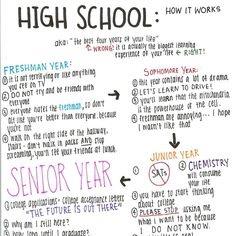 HIGH SCHOOL: HOW IT WORKS
aka: "the best four years of your life"
WRONG! it is actually the biggest learning
experience of your life ← RIGHT!
FRESHMAN YEAR:
① it is not terrifying or like anything
you see on TV
② DO NOT try and be friends with
everyone
③ everyone hates the freshman, so don't
act like you're better than everyone. because
you're not.
④ walk on the right side of the hallway,
thanks - don't walk in packs AND stop
screaming, you'll see your friends at lunch.
SOPHOMORE YEAR:
① this year contains a lot of drama.
② LET'S LEARN TO DRIVE!
③ you'll learn that the mitochondria
is the powerhouse of the cell.
④ freshman are annoying... I hope
I wasn't like that
JUNIOR YEAR
① SATs
② CHEMISTRY
will consume
your life
③ you have to start thinking
about college
④ PLEASE STOP asking me
what I want to be because
I DO NOT KNOW.
SENIOR YEAR
① college applications - college acceptance letters
"THE FUTURE IS OUT THERE"
② why am I still here?
③ how long until I graduate?